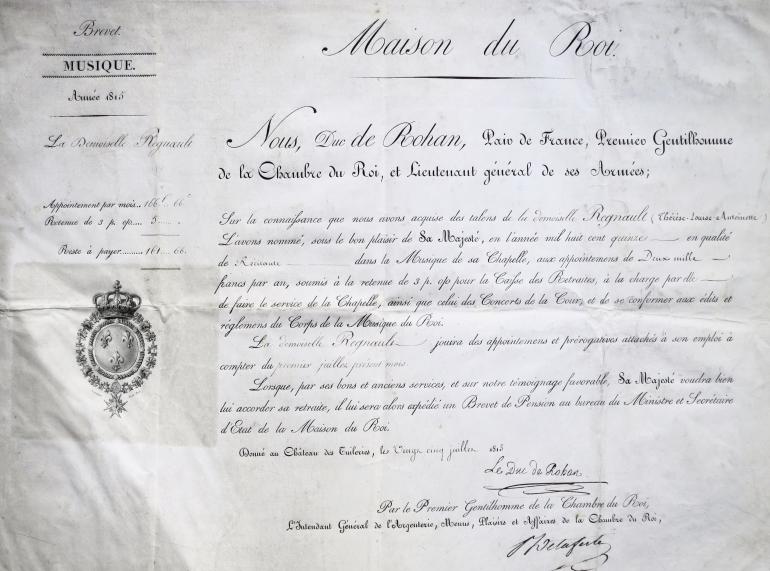 Brevet.
MUSIQUE.
Année 1815
La Demoiselle Regnault
Appointement par mois.. 166 f. 66 c.
Retenue de 3 p. o/o..... 5 ..... "
Reste à payer........ 161 ..... 66.
Maison du Roi.
Nous, Duc de Rohan, Pair de France, Premier Gentilhomme
de la Chambre du Roi, et Lieutenant général de ses Armées;
Sur la connaissance que nous avons acquise des talens de la demoiselle Regnault (Thérèse-Louise Antoinette)
L'avons nommé, sous le bon plaisir de Sa Majesté, en l'année mil huit cent quinze en qualité
de Récitante dans la Musique de sa Chapelle, aux appointemens de Deux mille
francs par an, soumis à la retenue de 3 p. o/o pour la Caisse des Retraites, à la charge par elle
de faire le service de la Chapelle, ainsi que celui des Concerts de la Cour, et de se conformer aux édits et
règlemens du Corps de la Musique du Roi.
La demoiselle Regnault jouira des appointemens et prérogatives attachés à son emploi à
compter du premier juillet présent mois.
Lorsque, par ses bons et anciens services, et sur notre témoignage favorable, Sa Majesté voudra bien
lui accorder sa retraite, il lui sera alors expédié un Brevet de Pension au bureau du Ministre et Secrétaire
d'Etat de la Maison du Roi.
Donné au Château des Tuileries, les Vingt cinq juillet 1815
Le Duc de Rohan
Par le Premier Gentilhomme de la Chambre du Roi,
L'Intendant Général de l'Argenterie, Menus, Plaisirs et Affaires de la Chambre du Roi,